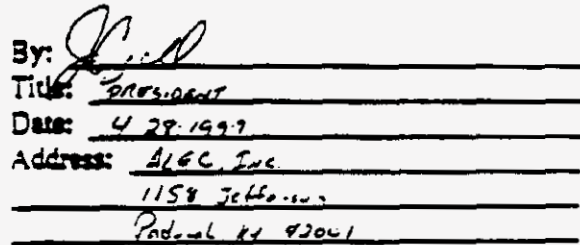 By:
Title: PRESIDENT
Date: 4 28.1997
Address: ALEC, Inc.
1158 Jefferson
Paducah KY 42001